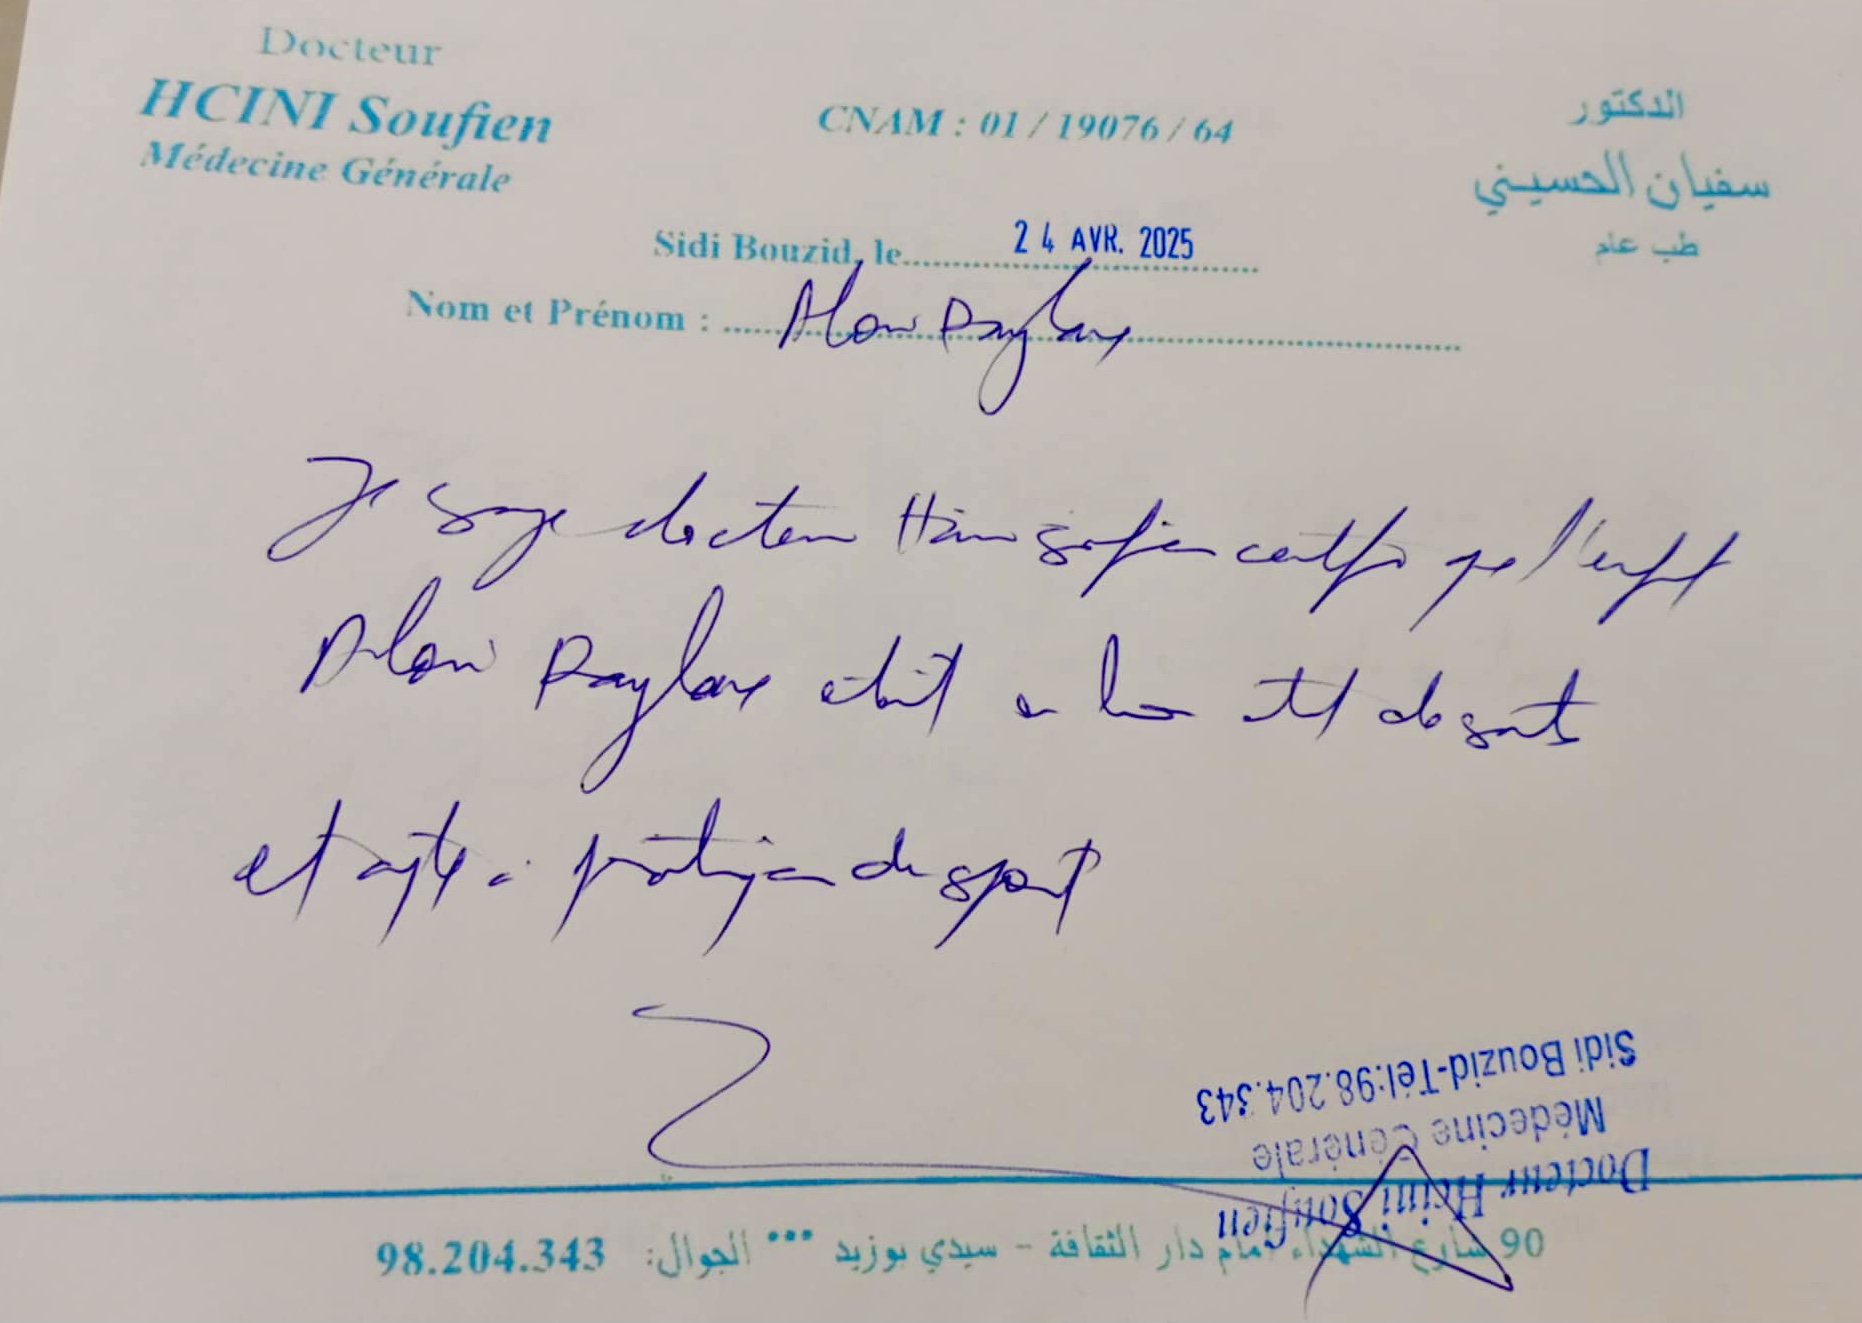 Docteur
HCINI Soufien
Médecine Générale
CNAM : 01 / 19076 / 64
الدكتور
سفيان الحسيني
طب عام
Sidi Bouzid, le 24 AVR. 2025
Nom et Prénom :
Je docteur Hcini Sofien certifie que l'enfant
était en bon état de santé
et apte à pratiquer du sport
Docteur Hcini Soufien
Médecine Générale
Sidi Bouzid-Tél:98.204.343
90 شارع الشهداء أمام دار الثقافة - سيدي بوزيد *** الجوال: 98.204.343